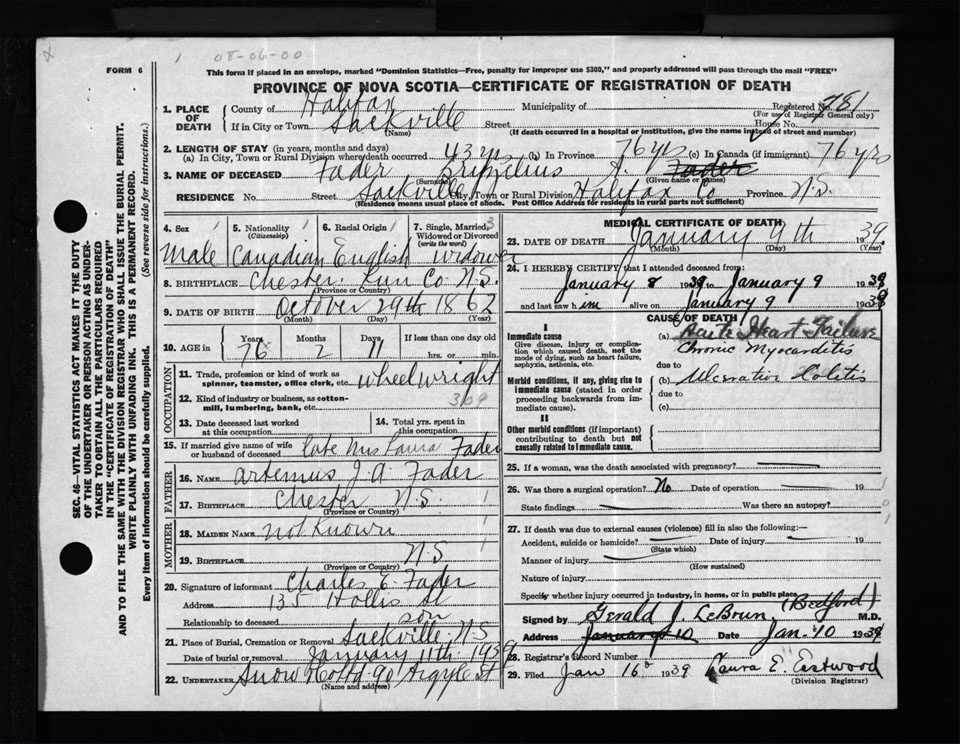 08-06-00
FORM 6
This form if placed in an envelope, marked "Dominion Statistics—Free, penalty for improper use $300," and properly addressed will pass through the mail "FREE"
PROVINCE OF NOVA SCOTIA—CERTIFICATE OF REGISTRATION OF DEATH
SEC. 46—VITAL STATISTICS ACT MAKES IT THE DUTY
OF THE UNDERTAKER OR PERSON ACTING AS UNDER-
TAKER TO OBTAIN ALL THE PARTICULARS REQUIRED
IN THE "CERTIFICATE OF REGISTRATION OF DEATH"
AND TO FILE THE SAME WITH THE DIVISION REGISTRAR WHO SHALL ISSUE THE BURIAL PERMIT.
WRITE PLAINLY WITH UNFADING INK. THIS IS A PERMANENT RECORD.
Every item of information should be carefully supplied. (See reverse side for instructions.)
1. PLACE OF DEATH County of Halifax Municipality of Registered No. 781
(For use of Registrar General only)
If in City or Town Sackville Street House No.
(Name) (If death occurred in a hospital or institution, give the name instead of street and number)
2. LENGTH OF STAY (in years, months and days)
(a) In City, Town or Rural Division where death occurred 43 yrs (b) In Province 76 yrs (c) In Canada (if immigrant) 76 yrs
3. NAME OF DECEASED Fader A. Fader
(Surname) (Given name or names)
RESIDENCE No. Street Sackville City, Town or Rural Division Halifax Co Province N.S.
(Residence means usual place of abode. Post Office Address for residents in rural parts not sufficient)
4. Sex 5. Nationality (Citizenship) 6. Racial Origin 7. Single, Married, Widowed or Divorced (write the word)
Male Canadian English Widower
8. BIRTHPLACE Chester Lun Co N.S.
(Province or Country)
9. DATE OF BIRTH October 29th 1862
(Month) (Day) (Year)
10. AGE in Years Months Days If less than one day
76 2 11 hrs. or min.
OCCUPATION
11. Trade, profession or kind of work as spinner, teamster, office clerk, etc. wheelwright
12. Kind of industry or business, as cotton-mill, lumbering, bank, etc. 309
13. Date deceased last worked at this occupation
14. Total yrs. spent in this occupation
15. If married give name of wife or husband of deceased late Mrs Laura Fader
FATHER
16. NAME Artemus J. A. Fader
17. BIRTHPLACE Chester N.S.
(Province or Country)
MOTHER
18. MAIDEN NAME not Known
19. BIRTHPLACE N.S
(Province or Country)
20. Signature of informant Charles E. Fader
Address 135 Hollis St
Relationship to deceased son
21. Place of Burial, Cremation or Removal Sackville N.S
Date of burial or removal January 11th 1939
22. UNDERTAKER Snow 90 Argyle St
(Name and address)
MEDICAL CERTIFICATE OF DEATH
23. DATE OF DEATH January 9th 1939
(Month) (Day) (Year)
24. I HEREBY CERTIFY that I attended deceased from:
January 8 1939 to January 9 1939
and last saw him alive on January 9 1939
CAUSE OF DEATH
I
Immediate cause
Give disease, injury or complication which caused death, not the mode of dying, such as heart failure, asphyxia, asthenia, etc.
(a) Acute Heart Failure
Chronic Myocarditis
due to
Morbid conditions, if any, giving rise to immediate cause (stated in order proceeding backwards from immediate cause).
(b) Ulcerative Colitis
due to
(c)
II
Other morbid conditions (if important) contributing to death but not causally related to immediate cause.
25. If a woman, was the death associated with pregnancy?
26. Was there a surgical operation? No Date of operation 19
State findings Was there an autopsy?
27. If death was due to external causes (violence) fill in also the following:—
Accident, suicide or homicide? Date of injury 19
(State which)
Manner of injury
(How sustained)
Nature of injury
Specify whether injury occurred in industry, in home, or in public place
(Bedford)
Signed by Gerald J. LeBrun M.D.
Address January 10 Date Jan. 10 1939
28. Registrar's Record Number
29. Filed Jan 16 1939 Laura E. Eastwood
(Division Registrar)